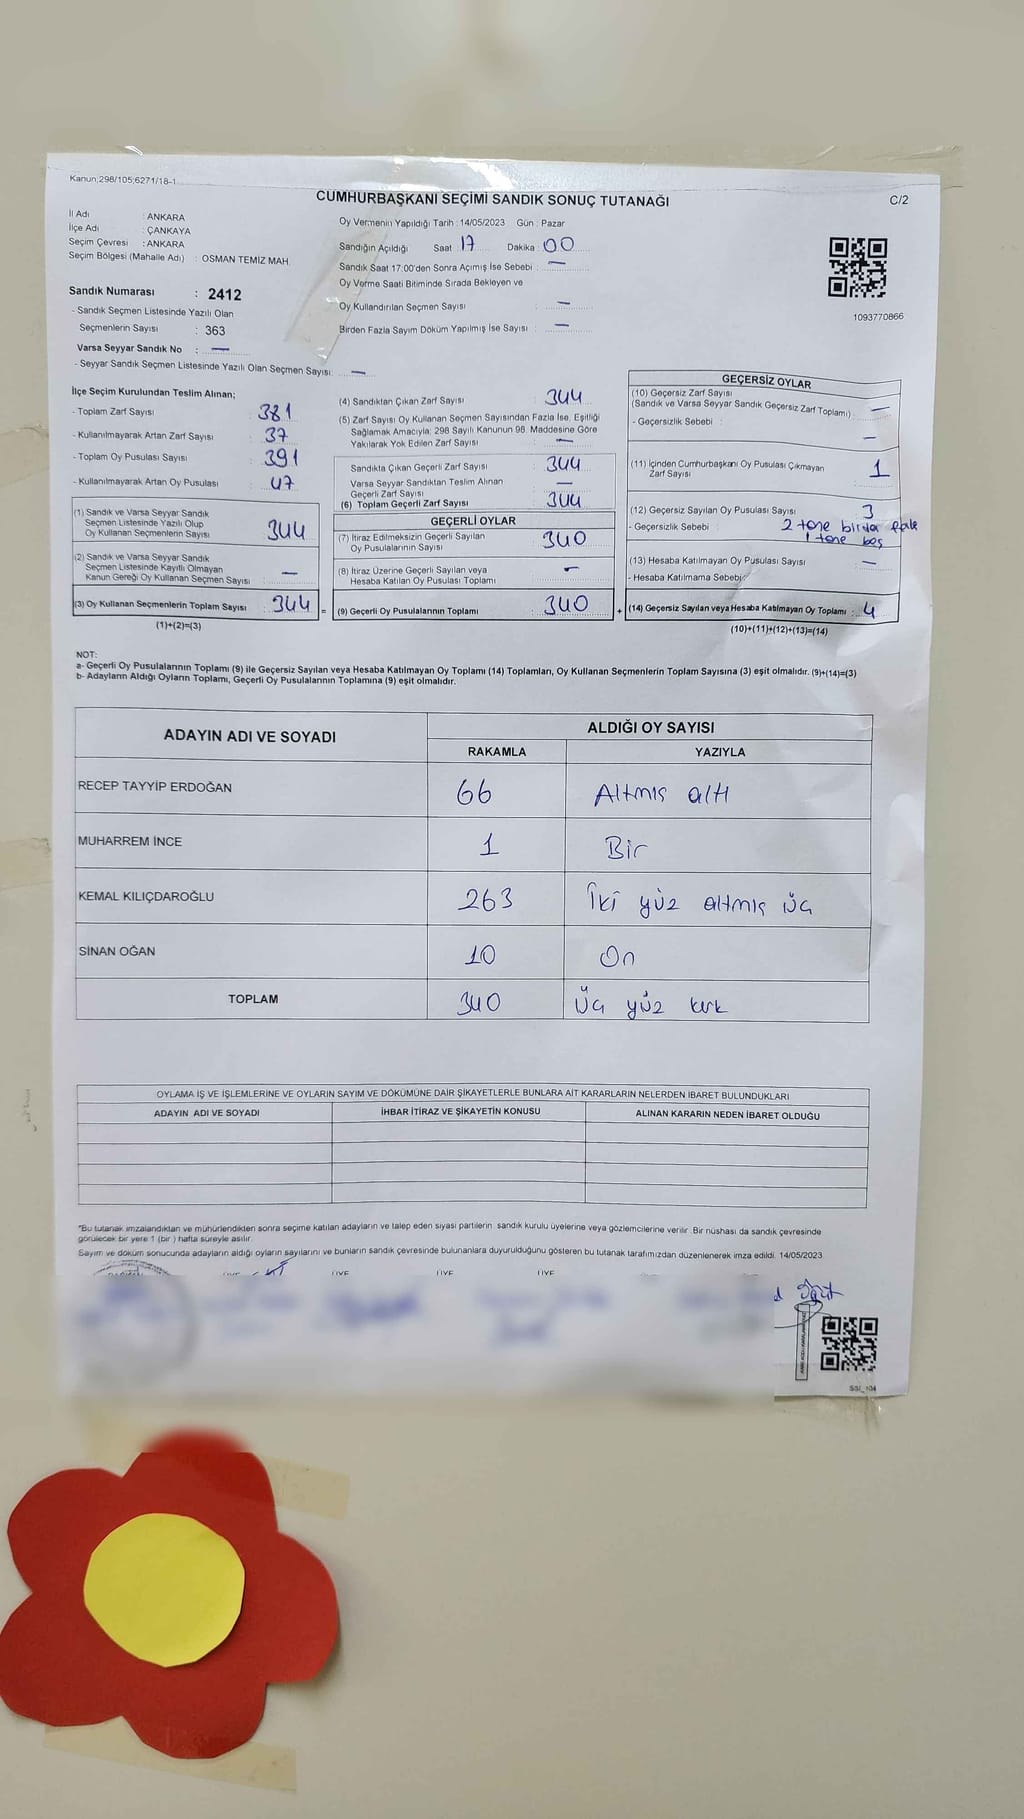 Kanun;298/105;6271/18-1
CUMHURBAŞKANI SEÇİMİ SANDIK SONUÇ TUTANAĞI
C/2
İl Adı : ANKARA
İlçe Adı : ÇANKAYA
Seçim Çevresi : ANKARA
Seçim Bölgesi (Mahalle Adı) : OSMAN TEMİZ MAH.
Sandık Numarası : 2412
- Sandık Seçmen Listesinde Yazılı Olan
Seçmenlerin Sayısı : 363
Varsa Seyyar Sandık No : —
- Seyyar Sandık Seçmen Listesinde Yazılı Olan Seçmen Sayısı: —
Oy Vermenin Yapıldığı Tarih : 14/05/2023 Gün : Pazar
Sandığın Açıldığı Saat 17 Dakika : 00
Sandık Saat 17:00'den Sonra Açımış İse Sebebi : —
Oy Verme Saati Bitiminde Sırada Bekleyen ve
Oy Kullandırılan Seçmen Sayısı : —
Birden Fazla Sayım Döküm Yapılmış İse Sayısı : —
1093770866
İlçe Seçim Kurulundan Teslim Alınan;
- Toplam Zarf Sayısı : 381
- Kullanılmayarak Artan Zarf Sayısı : 37
- Toplam Oy Pusulası Sayısı : 391
- Kullanılmayarak Artan Oy Pusulası : 47
(1) Sandık ve Varsa Seyyar Sandık
Seçmen Listesinde Yazılı Olup
Oy Kullanan Seçmenlerin Sayısı : 344
(2) Sandık ve Varsa Seyyar Sandık
Seçmen Listesinde Kayıtlı Olmayan
Kanun Gereği Oy Kullanan Seçmen Sayısı : —
(3) Oy Kullanan Seçmenlerin Toplam Sayısı : 344 =
(1)+(2)=(3)
(4) Sandıktan Çıkan Zarf Sayısı : 344
(5) Zarf Sayısı Oy Kullanan Seçmen Sayısından Fazla İse, Eşitliği
Sağlamak Amacıyla; 298 Sayılı Kanunun 98. Maddesine Göre
Yakılarak Yok Edilen Zarf Sayısı : —
Sandıkta Çıkan Geçerli Zarf Sayısı : 344
Varsa Seyyar Sandıktan Teslim Alınan
Geçerli Zarf Sayısı : —
(6) Toplam Geçerli Zarf Sayısı : 344
GEÇERLİ OYLAR
(7) İtiraz Edilmeksizin Geçerli Sayılan
Oy Pusulalarının Sayısı : 340
(8) İtiraz Üzerine Geçerli Sayılan veya
Hesaba Katılan Oy Pusulası Toplamı : —
(9) Geçerli Oy Pusulalarının Toplamı : 340 +
GEÇERSİZ OYLAR
(10) Geçersiz Zarf Sayısı
(Sandık ve Varsa Seyyar Sandık Geçersiz Zarf Toplamı) : —
- Geçersizlik Sebebi : —
(11) İçinden Cumhurbaşkanı Oy Pusulası Çıkmayan
Zarf Sayısı : 1
(12) Geçersiz Sayılan Oy Pusulası Sayısı : 3
- Geçersizlik Sebebi : 2 tane birden fazla
1 tane boş
(13) Hesaba Katılmayan Oy Pusulası Sayısı : —
- Hesaba Katılmama Sebebi:
(14) Geçersiz Sayılan veya Hesaba Katılmayan Oy Toplamı : 4
(10)+(11)+(12)+(13)=(14)
NOT:
a- Geçerli Oy Pusulalarının Toplamı (9) ile Geçersiz Sayılan veya Hesaba Katılmayan Oy Toplamı (14) Toplamları, Oy Kullanan Seçmenlerin Toplam Sayısına (3) eşit olmalıdır. (9)+(14)=(3)
b- Adayların Aldığı Oyların Toplamı, Geçerli Oy Pusulalarının Toplamına (9) eşit olmalıdır.
ADAYIN ADI VE SOYADI ALDIĞI OY SAYISI
RAKAMLA YAZIYLA
RECEP TAYYİP ERDOĞAN 66 Altmış altı
MUHARREM İNCE 1 Bir
KEMAL KILIÇDAROĞLU 263 İki yüz altmış üç
SİNAN OĞAN 10 On
TOPLAM 340 Üç yüz kırk
OYLAMA İŞ VE İŞLEMLERİNE VE OYLARIN SAYIM VE DÖKÜMÜNE DAİR ŞİKAYETLERLE BUNLARA AİT KARARLARIN NELERDEN İBARET BULUNDUKLARI
ADAYIN ADI VE SOYADI İHBAR İTİRAZ VE ŞİKAYETİN KONUSU ALINAN KARARIN NEDEN İBARET OLDUĞU
*Bu tutanak imzalandıktan ve mühürlendikten sonra seçime katılan adayların ve talep eden siyasi partilerin sandık kurulu üyelerine veya gözlemcilerine verilir. Bir nüshası da sandık çevresinde
görülecek bir yere 1 (bir ) hafta süreyle asılır.
Sayım ve döküm sonucunda adayların aldığı oyların sayılarını ve bunların sandık çevresinde bulunanlara duyurulduğunu gösteren bu tutanak tarafımızdan düzenlenerek imza edildi. 14/05/2023
ÜYE ÜYE ÜYE ÜYE